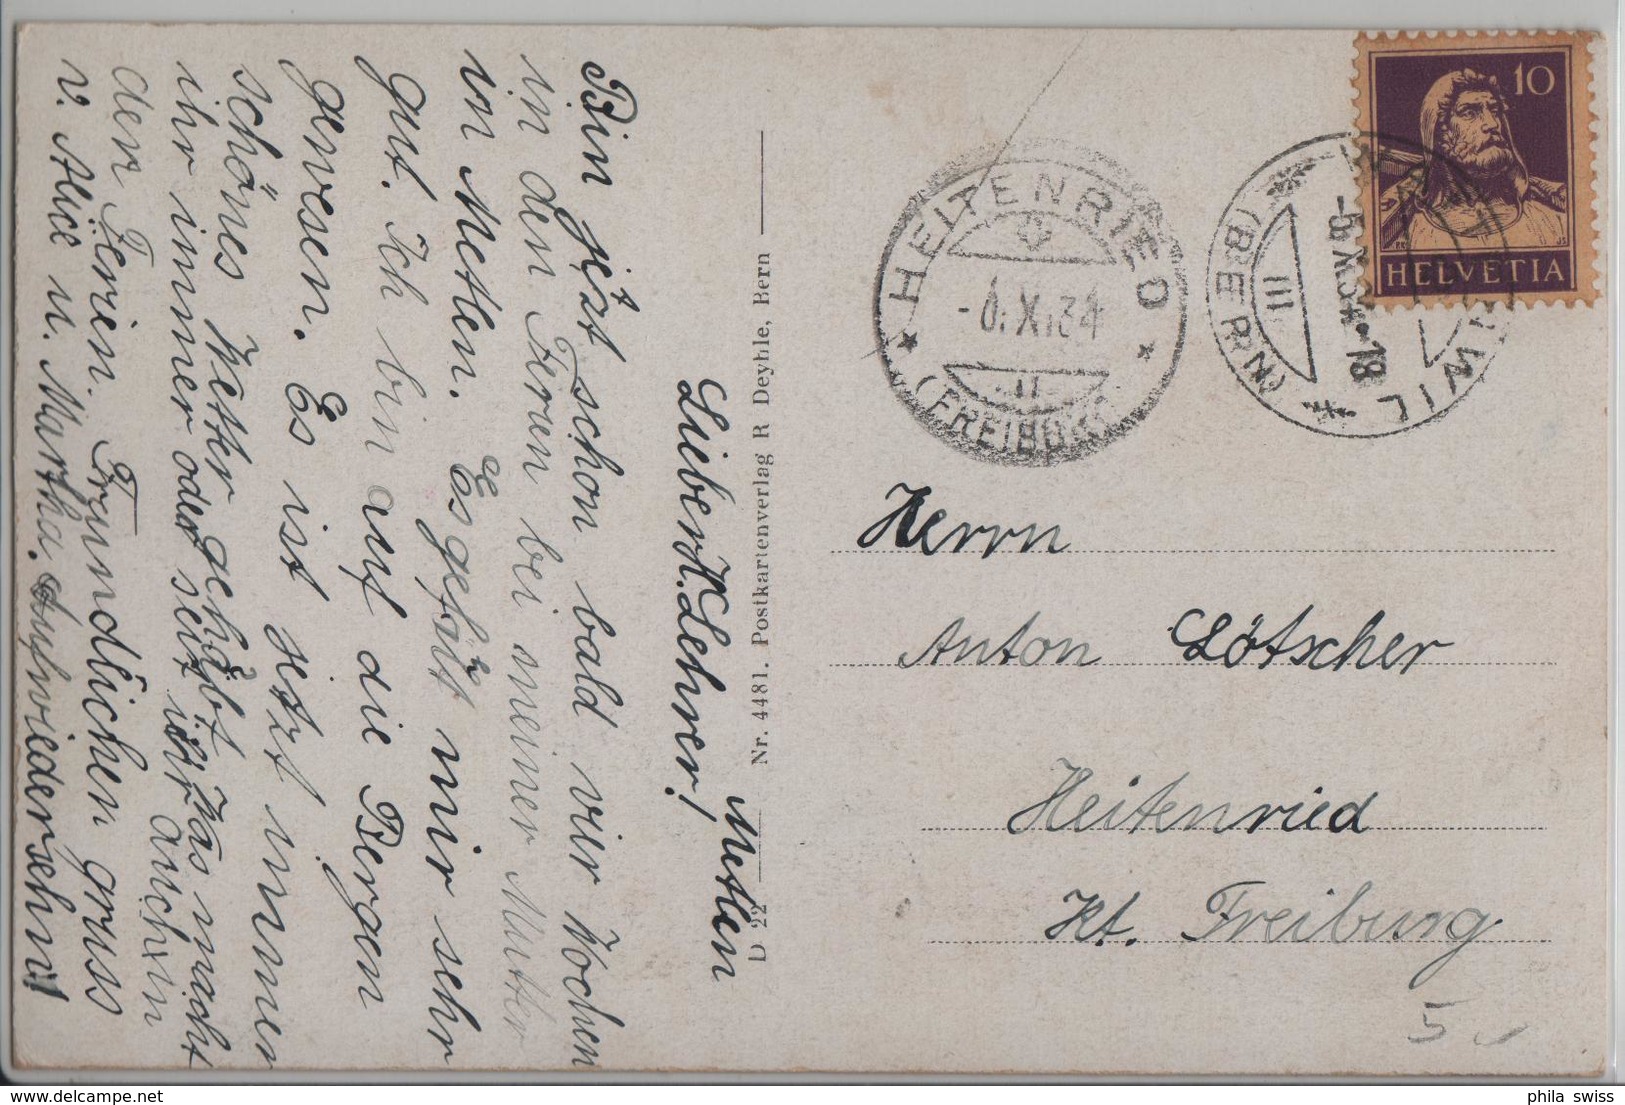 Metlen
Lieber H. Lehrer!
Bin jetzt schon bald vier Wochen
in den Ferien bei meiner Mutter
in Metlen. Es gefällt mir sehr
gut. Ich bin auf die Bergen
gewesen. Es ist jetzt immer
schönes Wetter gehabt. Was macht
ihr immer oder seit ihr auch in
den Ferien. Freundlichen gruss
v. Alice u. Martha. Aufwiedersehn!
D 22
Nr. 4481. Postkartenverlag R Deyhle, Bern
HEITENRIED
-6.X.34
II
(FREIBURG)
-5.X.34-18
III
(BERN)
10
HELVETIA
Herrn
Anton Lötscher
Heitenried
Kt. Freiburg
5
phila swiss